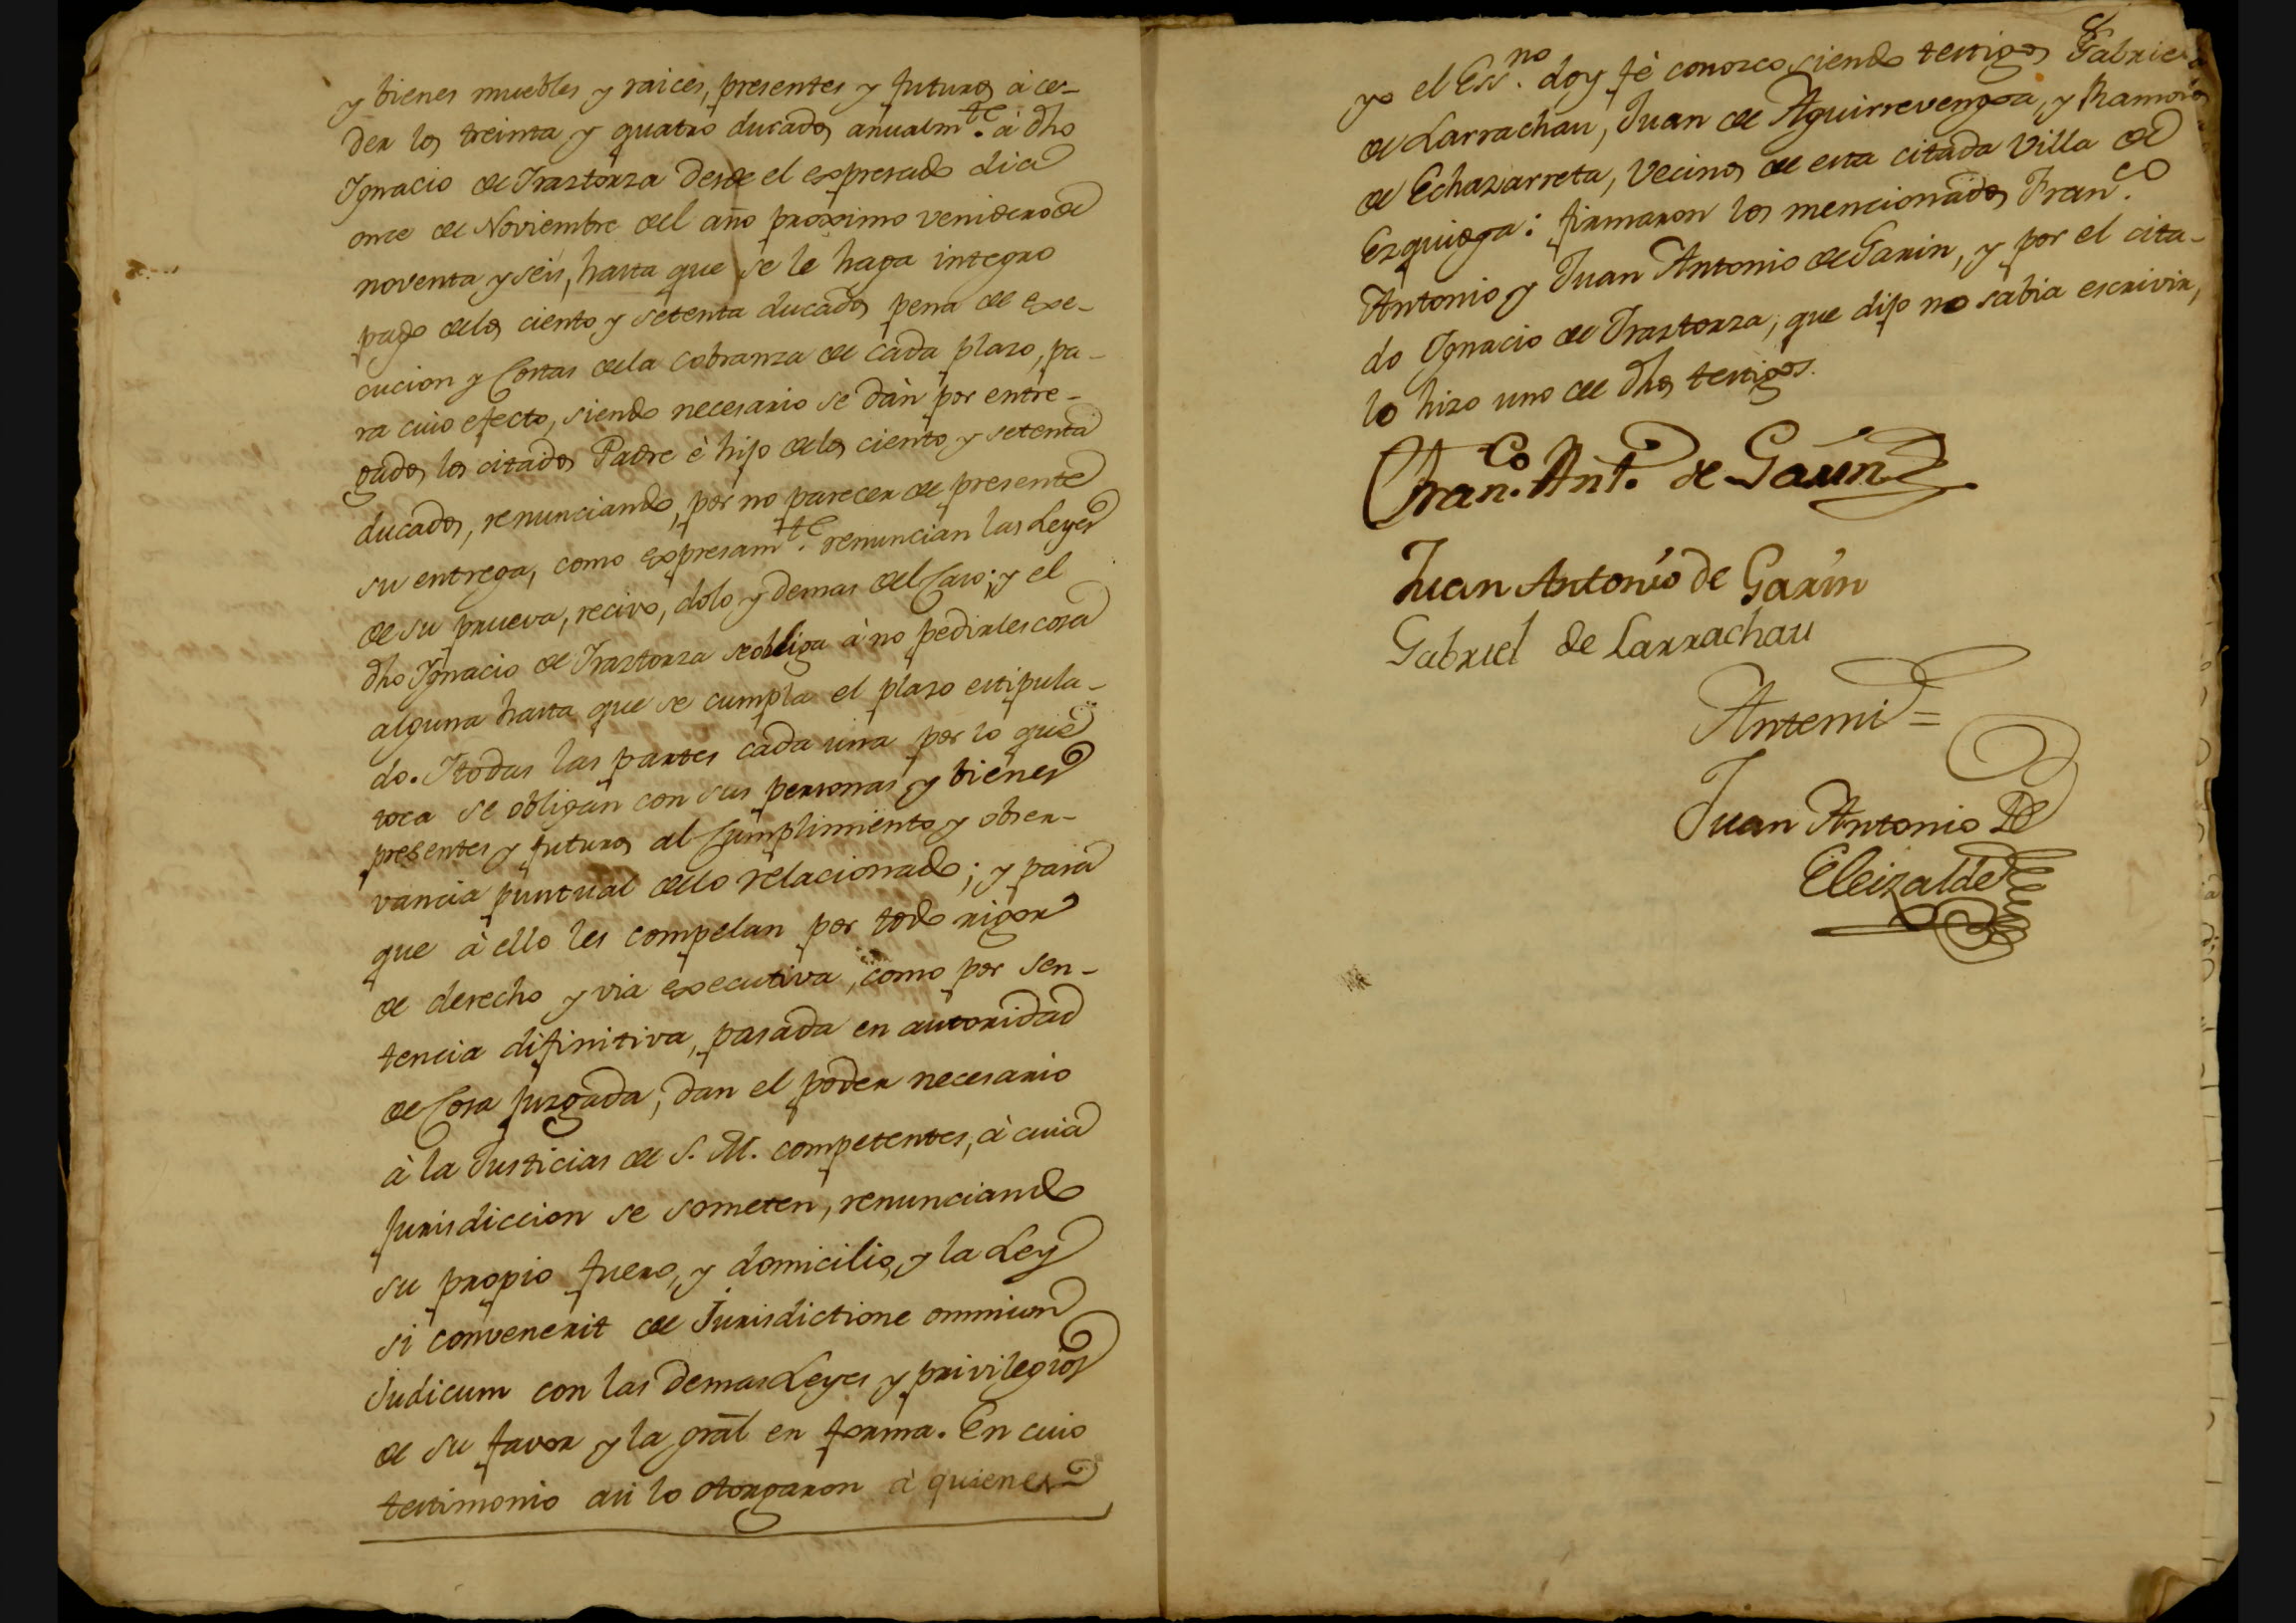 y bienes muebles y raices, presentes y futuros à ce-
der los treinta y quatro ducados anualm.te à dho
Ygnacio de Iraztorza desde el expresado dia
once de Noviembre del año proximo venidero de
noventa y seis, hasta que se le haga integro
pago delos ciento y setenta ducados pena de exe-
cucion y Costas dela cobranza de cada plazo, pa-
ra cuio efecto, siendo necesario se dàn por entre-
gados los citados Padre è hijo delos ciento y setenta
ducados, renunciando, por no parecer de presente
su entrega, como expresam.te renuncian las Leyes
de su prueva, recivo, dolo y demas del Caso; y el
dho Ygnacio de Iraztorza se obliga à no pedirles cosa
alguna hasta que se cumpla el plazo estipula-
do. I todas las partes cada una por lo que
toca se obligan con sus personas y bienes
presentes y futuros al Cumplimiento y obser-
vancia puntual dello relacionado; y para
que à ello les compelan por todo rigor
de derecho y via executiva, como por sen-
tencia difinitiva, pasada en autoridad
de Cosa juzgada; dan el poder necesario
à la Justicias de S. M. competentes, à cuia
Jurisdiccion se someten, renunciando
su propio fuero, y domicilio, y la Ley
si convenerit de Jurisdictione omnium
Judicum con las demas Leyes y privilegios
de su favor y la gral en forma. En cuio
testimonio asi lo otorgaron à quienes
yo el Ess.no doy fè conozco, siendo testigos Gabriel
de Larrachau, Juan de Aguirrevengoa, y Ramon
de Echazarreta, Vecinos de esta citada Villa de
Ezquioga: firmaron los mencionados Fran.co
Antonio y Juan Antonio de Garin, y por el cita-
do Ygnacio de Iraztorza, que dijo no sabia escrivir,
lo hizo uno de dhos testigos.
Fran.co Ant.o de Garin
Juan Antonio de Garin
Gabriel de Larrachau
Antemi =
Juan Antonio De
Eleizalde